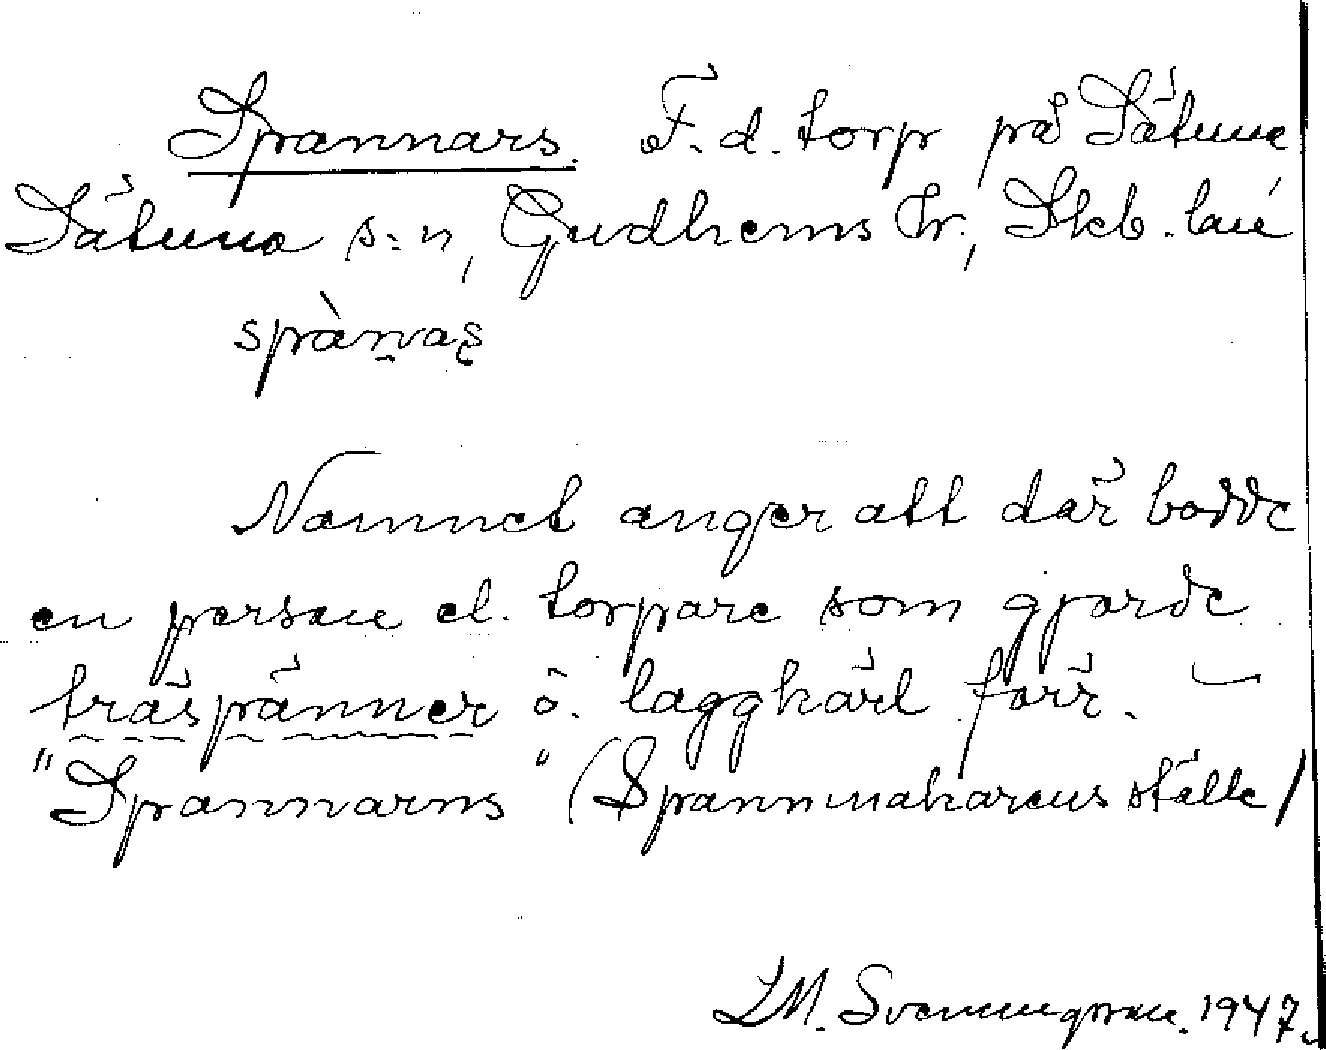 Spannars. F. d. torp på Sätuna
Sätuna s:n, Gudhems hr., Skb. län
spànas
Namnet anger att där bodde
en person el. torpare som gjorde
träspänner o. laggkärl förr. —
"Spannarns" (Spannmakarens ställe)
LM. Svenungsson. 1947.